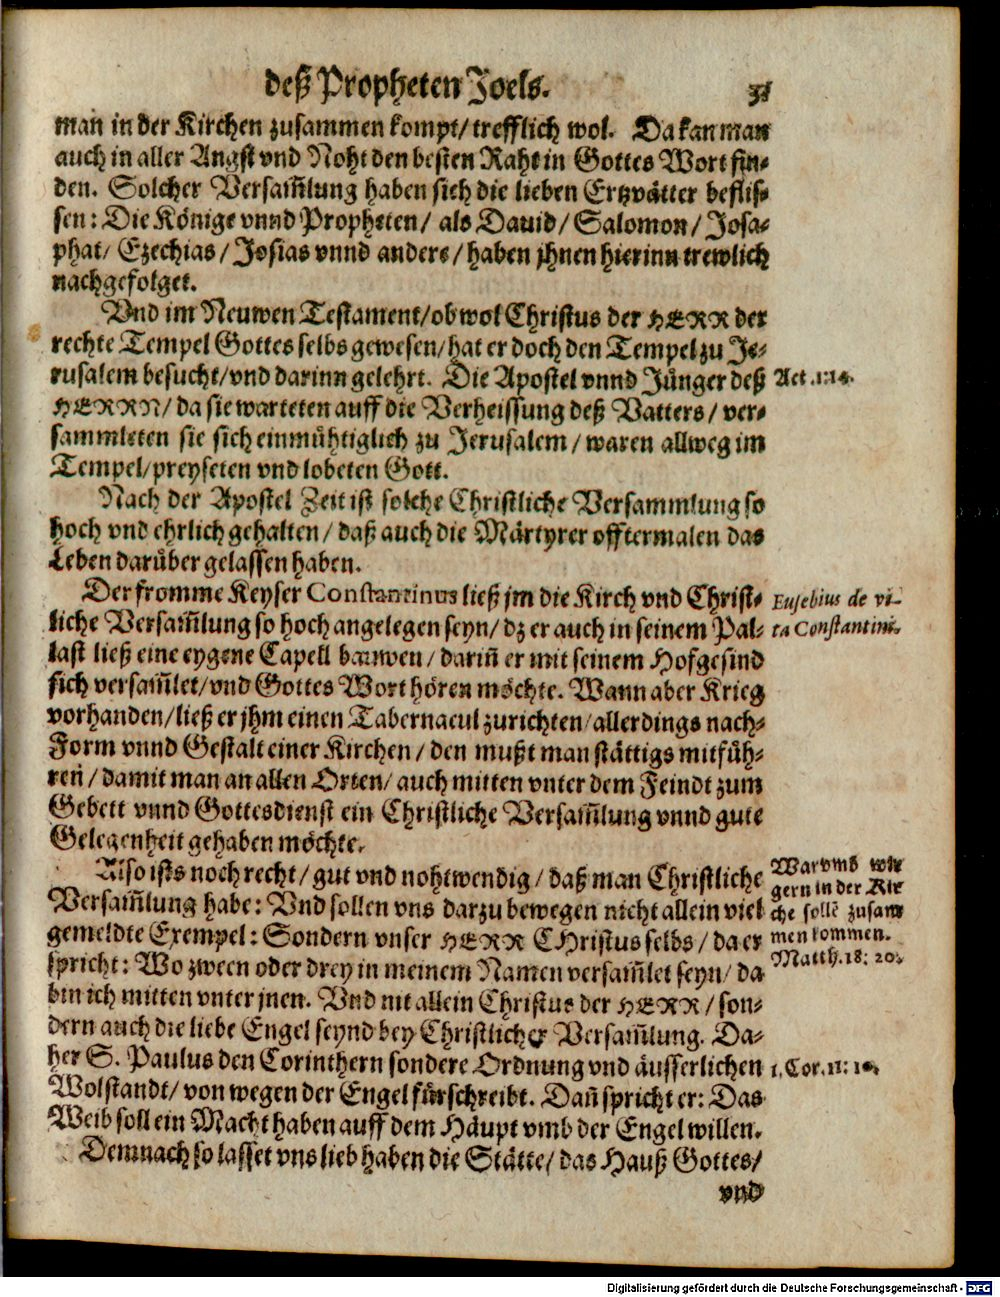 deß Propheten Joels. 31
man in der Kirchen zusammen kompt/ trefflich wol. Da kan man
auch in aller Angst vnd Noht den besten Raht in Gottes Wort fin-
den. Solcher Versam̃lung haben sich die lieben Ertzvätter beflis-
sen: Die Könige vnnd Propheten/ als Dauid/ Salomon/ Josa-
phat/ Ezechias/ Josias vnnd andere/ haben jhnen hierinn trewlich
nachgefolget.
Vnd im Neuwen Testament/ ob wol Christus der HERR der
rechte Tempel Gottes selbs gewesen/ hat er doch den Tempel zu Je-
rusalem besucht/ vnd darinn gelehrt. Die Apostel vnnd Jünger deß
Act. 1: 14.
HERRN/ da sie warteten auff die Verheissung deß Vatters/ ver-
sammleten sie sich einmühtiglich zu Jerusalem/ waren allweg im
Tempel/ preyseten vnd lobeten Gott.
Nach der Apostel Zeit ist solche Christliche Versammlung so
hoch vnd ehrlich gehalten/ daß auch die Märtyrer offtermalen das
Leben darüber gelassen haben.
Der fromme Keyser Constantinus ließ jm die Kirch vnd Christ-
Eusebius de vi-
liche Versam̃lung so hoch angelegen seyn/ dz er auch in seinem Pal-
ta Constantini.
last ließ eine eygene Capell bauwen/ dariñ er mit seinem Hofgesind
sich versam̃let/ vnd Gottes Wort hören möchte. Wann aber Krieg
vorhanden/ ließ er jhm einen Tabernacul zurichten/ allerdings nach
Form vnnd Gestalt einer Kirchen/ den mußt man stättigs mitfüh-
ren/ damit man an allen Orten/ auch mitten vnter dem Feindt zum
Gebett vnnd Gottesdienst ein Christliche Versam̃lung vnnd gute
Gelegenheit gehaben möchte.
Also ists noch recht/ gut vnd nohtwendig/ daß man Christliche
Warvmb wir
gern in der Kir
Versam̃lung habe: Vnd sollen vns darzu bewegen nicht allein viel
che sollẽ zusam
gemeldte Exempel: Sondern vnser HERR CHristus selbs/ da er
men kommen.
spricht: Wo zween oder drey in meinem Namen versam̃let seyn/ da
Matth. 18: 20.
bin ich mitten vnter jnen. Vnd nit allein Christus der HERR/ son-
dern auch die liebe Engel seynd bey Christlicher Versam̃lung. Da-
her S. Paulus den Corinthern sondere Ordnung vnd äusserlichen
1. Cor. 11: 10.
Wolstandt/ von wegen der Engel fürschreibt. Dañ spricht er: Das
Weib soll ein Macht haben auff dem Häupt vmb der Engel willen.
Demnach so lasset vns lieb haben die Stätte/ das Hauß Gottes/
vnd
Digitalisierung gefördert durch die Deutsche Forschungsgemeinschaft - DFG